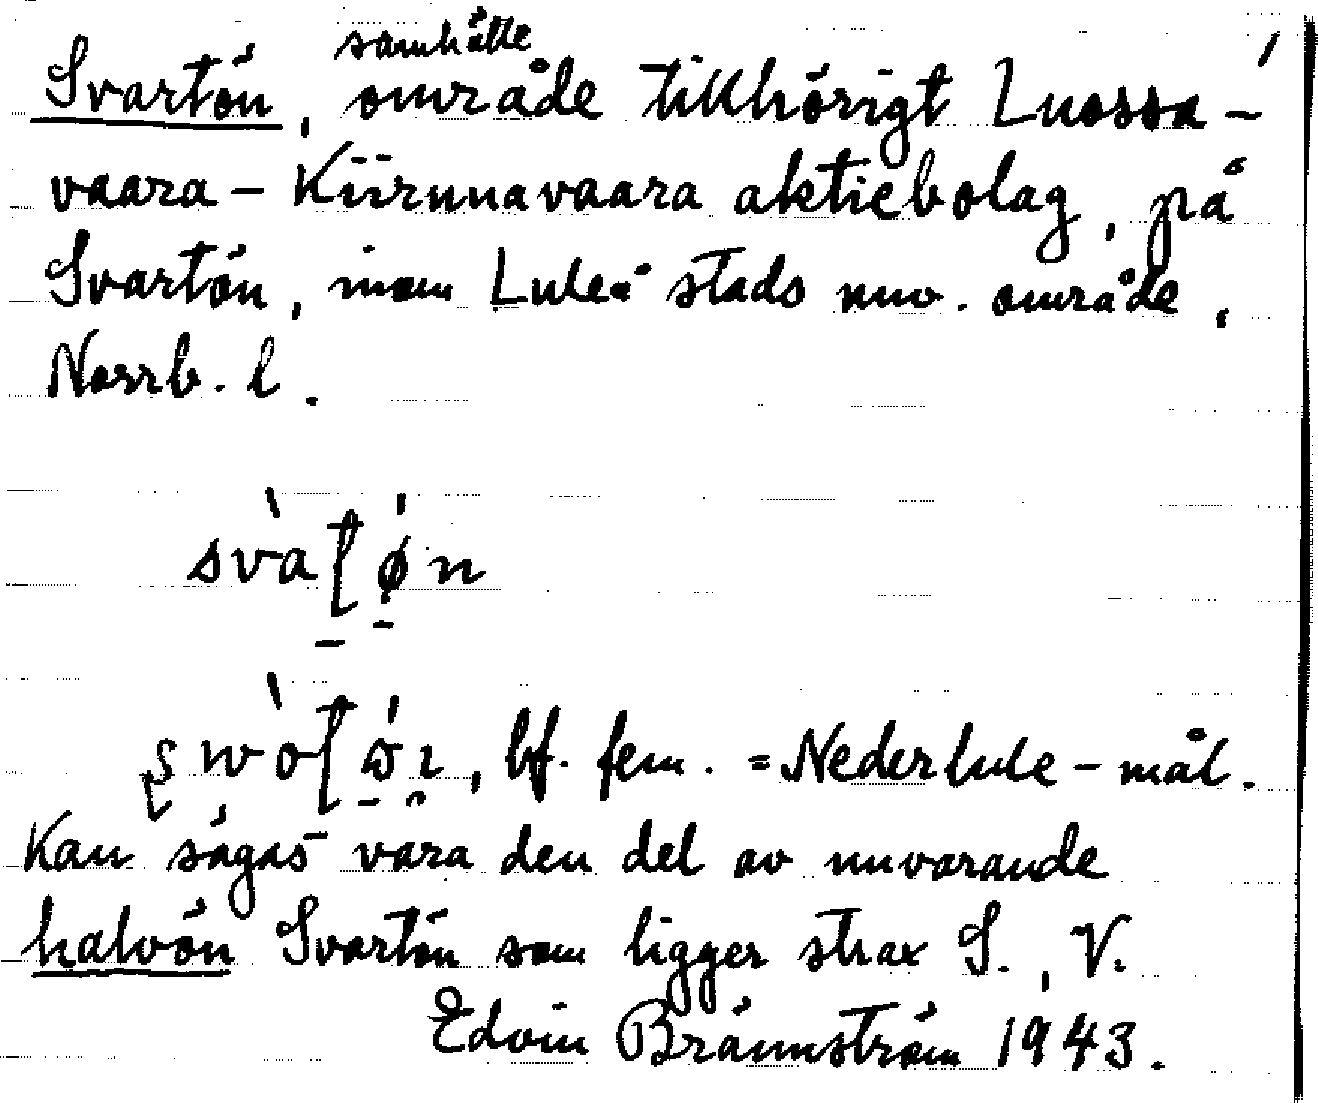 samhälle
Svartön, område tillhörigt Luossa-
vaara-Kiirunavaara aktiebolag, på
Svartön, inom Luleå stads nuv. område,
Norrb. l.
bf. fem. = Nederlule-mål.
Kan sägas vara den del av nuvarande
halvön Svartön som ligger strax S., V.
Edvin Brännström 1943.